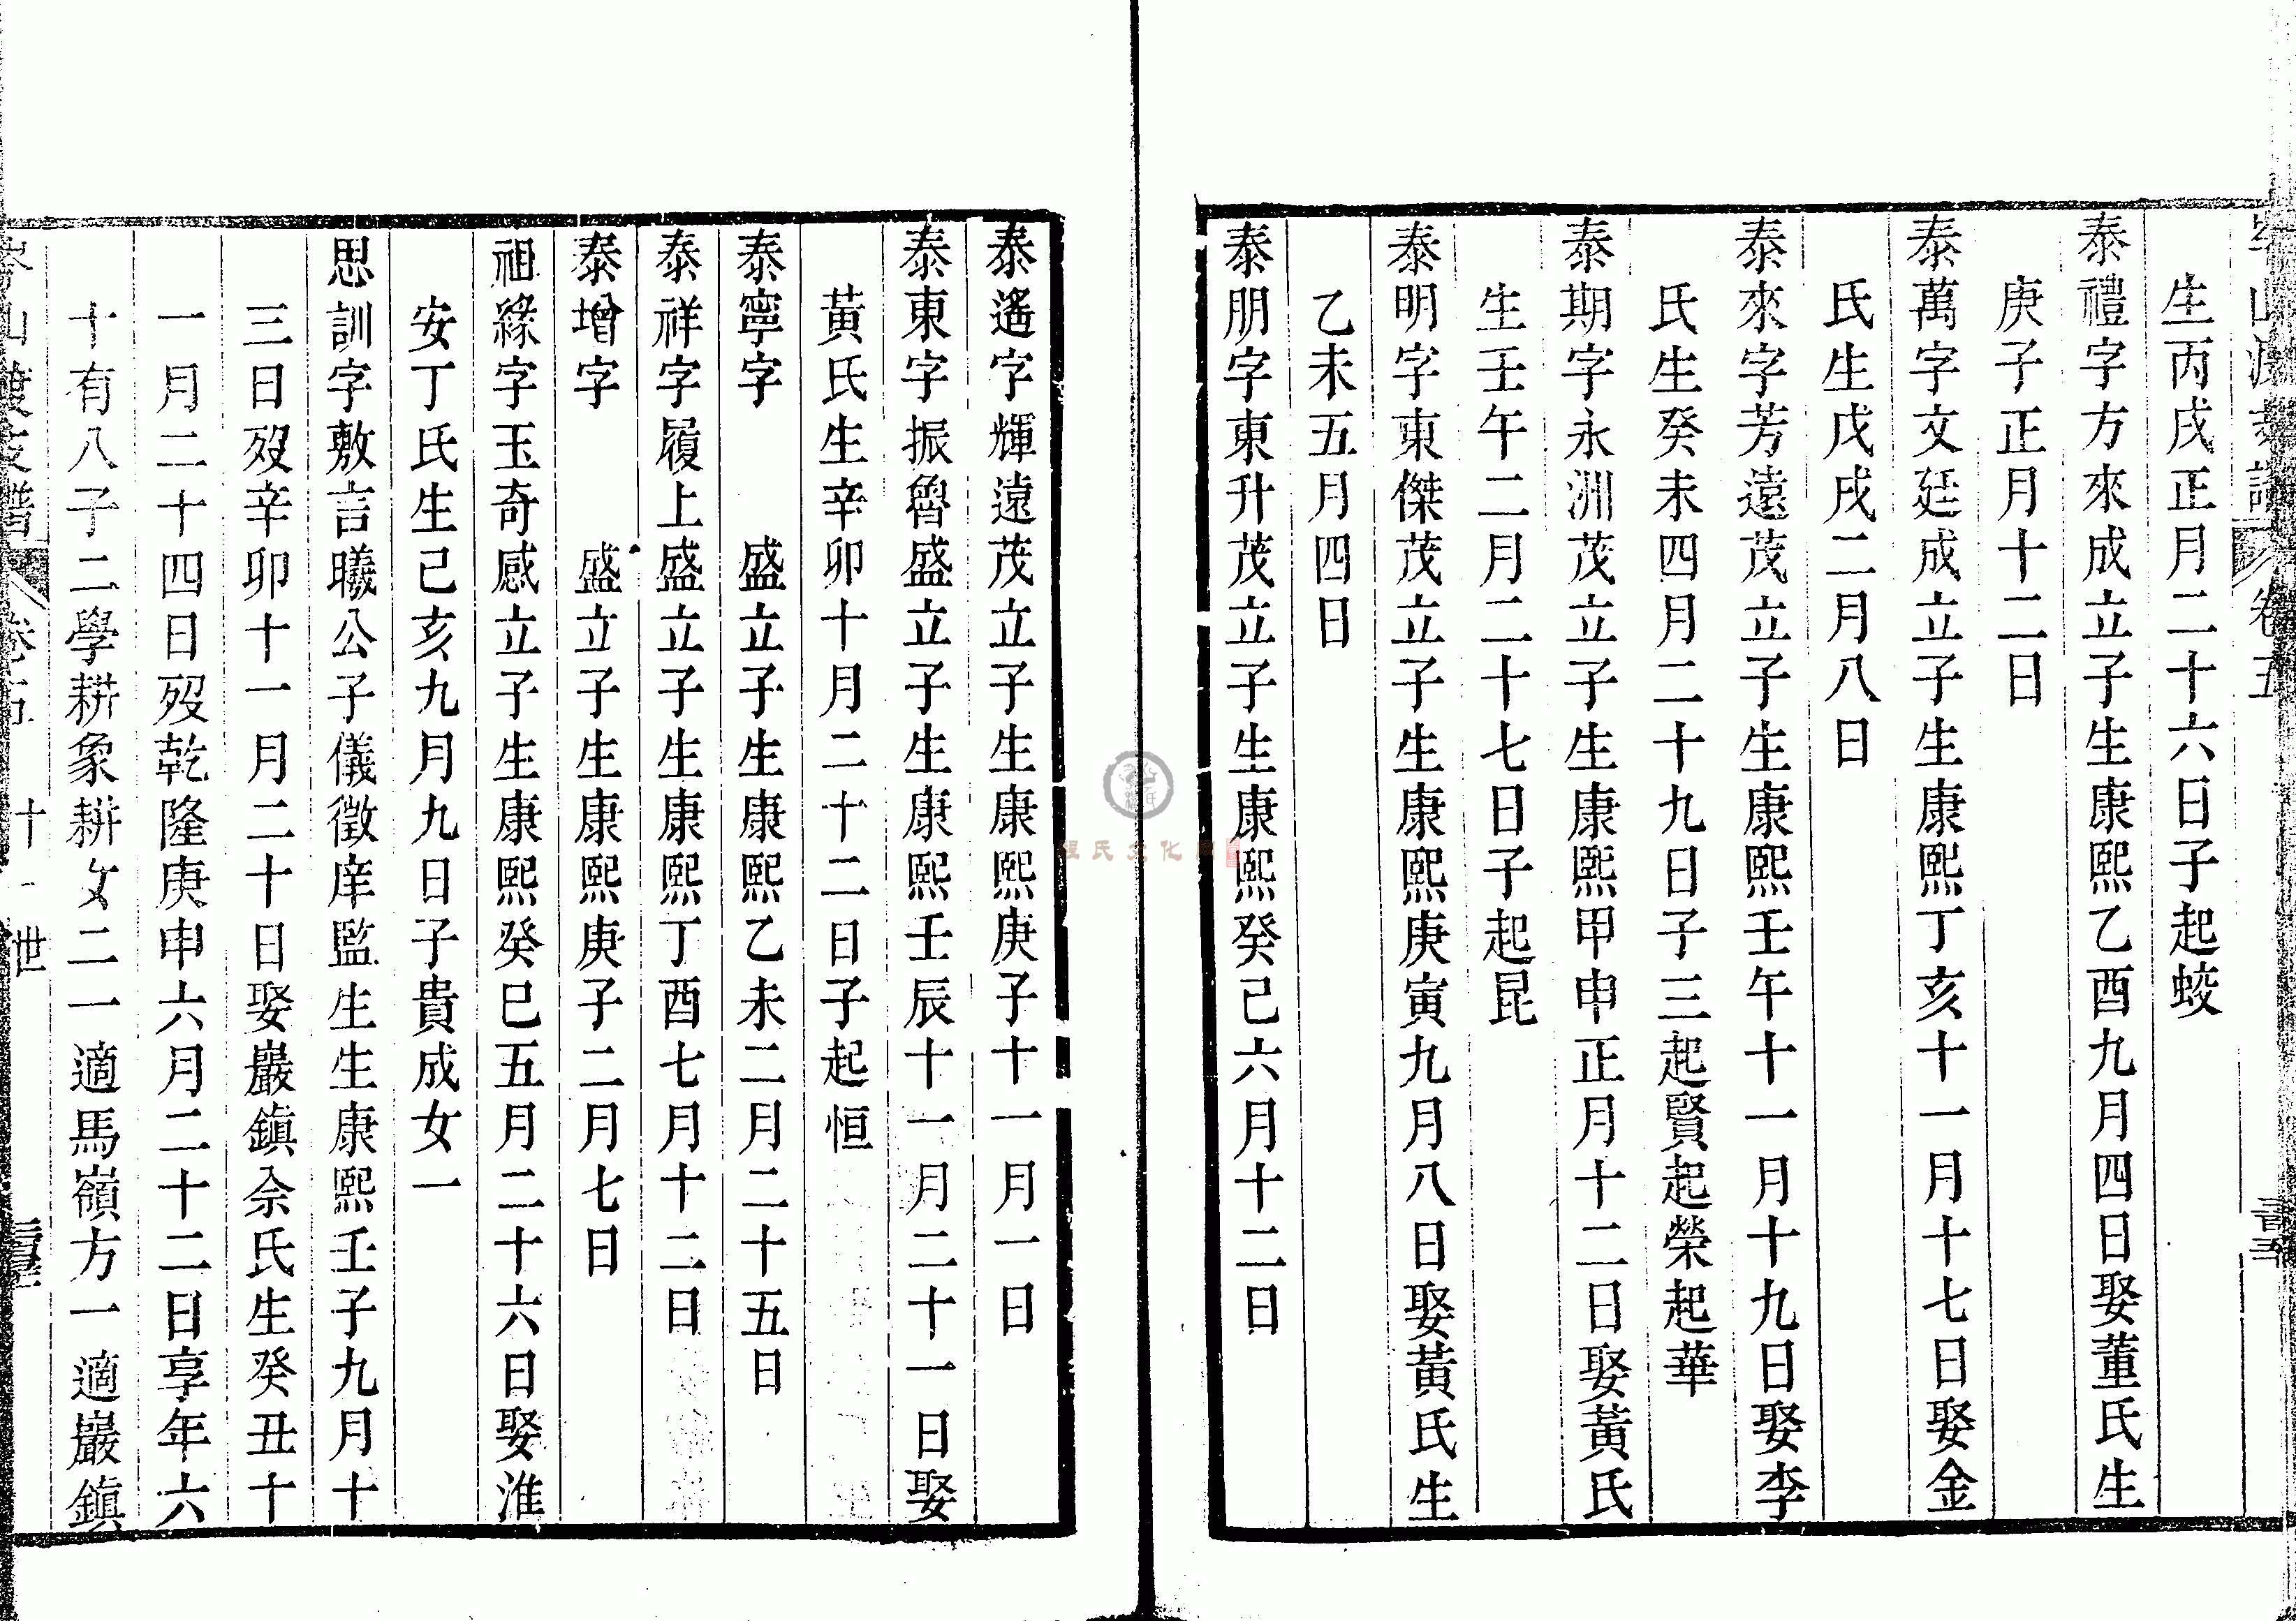 生丙戌正月二十六日子起蛟
泰禮字方來成立子生康熙乙酉九月四日娶董氏生
庚子正月十二日
泰萬字文廷成立子生康熙丁亥十一月十七日娶金
氏生戊戌二月八日
泰來字芳遠茂立子生康熙壬午十一月十九日娶李
氏生癸未四月二十九日子三起賢起榮起華
泰期字永洲茂立子生康熙甲申正月十二日娶黃氏
生壬午二月二十七日子起昆
泰明字東傑茂立子生康熙庚寅九月八日娶黃氏生
乙未五月四日
泰朋字東升茂立子生康熙癸己六月十二日
泰遙字輝遠茂立子生康熙庚子十一月一日
泰東字振魯盛立子生康熙壬辰十一月二十一日娶
黃氏生辛卯十月二十二日子起恒
泰寧字　　盛立子生康熙乙未二月二十五日
泰祥字履上盛立子生康熙丁酉七月十二日
泰增字　　盛立子生康熙庚子二月七日
祖緣字玉奇感立子生康熙癸巳五月二十六日娶淮
安丁氏生己亥九月九日子貴成女一
思訓字敷言曦公子儀徵庠監生生康熙壬子九月十
三日歿辛卯十一月二十日娶巖鎮余氏生癸丑十
一月二十四日歿乾隆庚申六月二十二日享年六
十有八子二學耕象耕女二一適馬嶺方一適巖鎮
卷五 十一世
氏文化